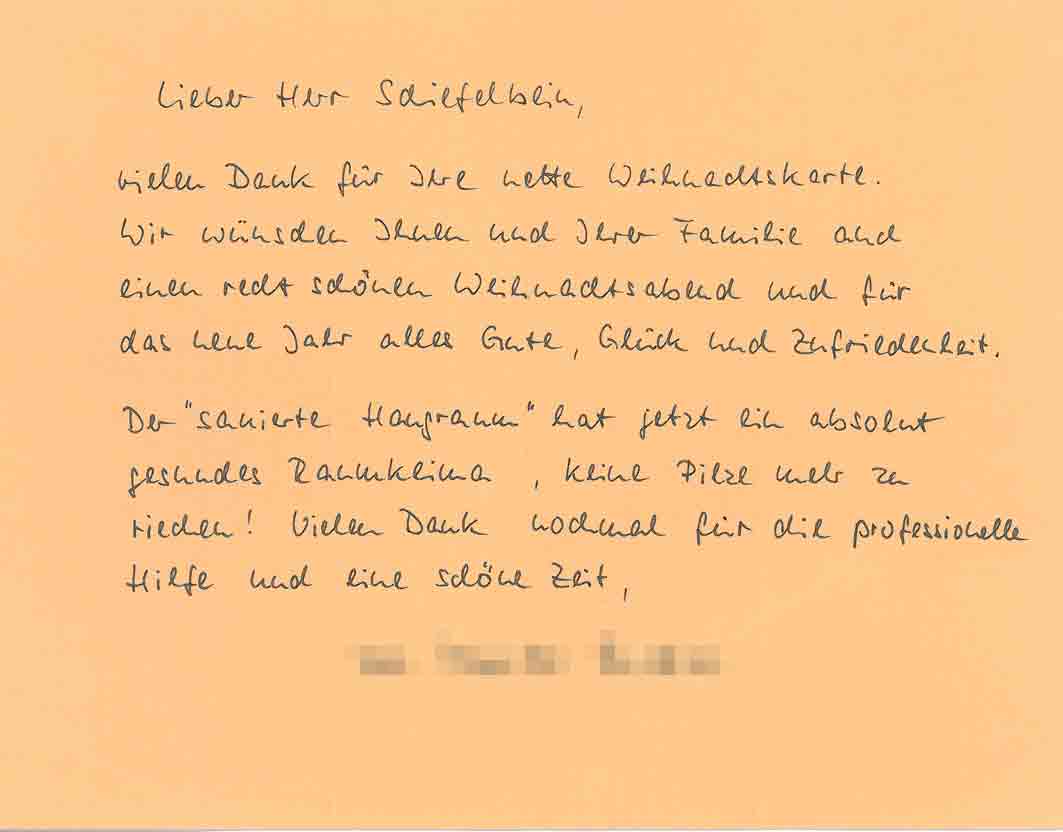 Lieber Herr Schiefelbein,
vielen Dank für Ihre nette Weihnachtskarte.
Wir wünschen Ihnen und Ihrer Familie auch
einen recht schönen Weihnachtsabend und für
das neue Jahr alles Gute, Glück und Zufriedenheit.
Der "sanierte Hangraum" hat jetzt ein absolut
gesundes Raumklima, keine Pilze mehr zu
riechen! Vielen Dank nochmal für die professionelle
Hilfe und eine schöne Zeit,